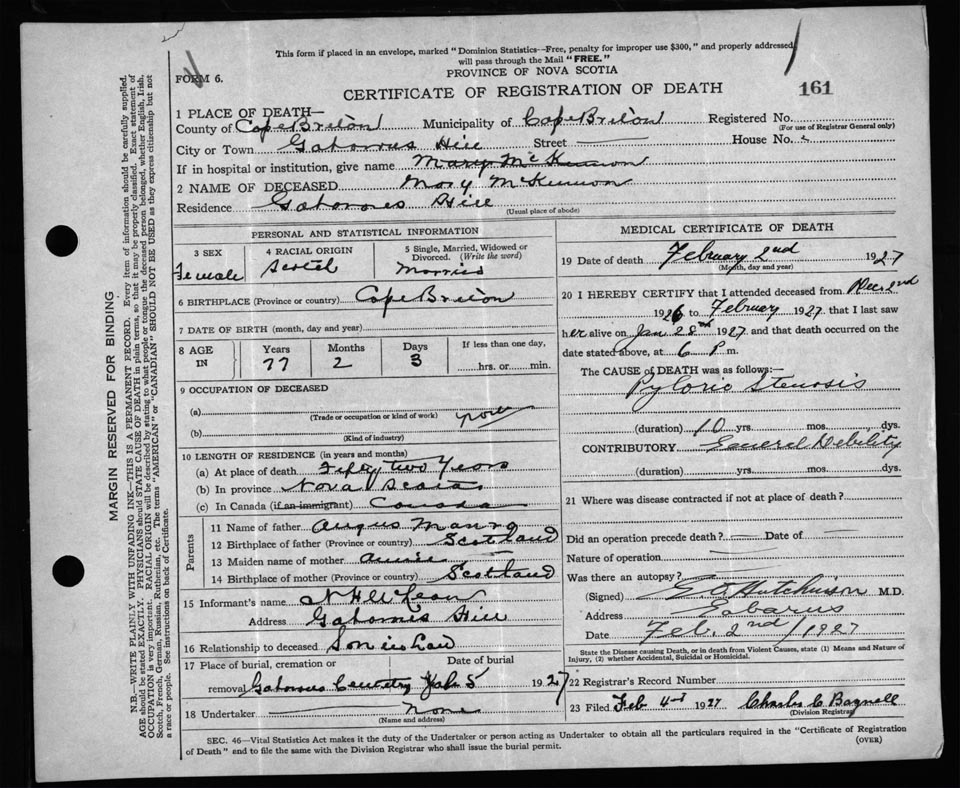 This form if placed in an envelope, marked "Dominion Statistics—Free, penalty for improper use $300," and properly addressed,
will pass through the Mail "FREE."
FORM 6.
PROVINCE OF NOVA SCOTIA
CERTIFICATE OF REGISTRATION OF DEATH
161
1 PLACE OF DEATH—
County of Cape Breton Municipality of Cape Breton Registered No.
(For use of Registrar General only)
City or Town Gabarous Hill Street House No.
If in hospital or institution, give name Mary McKinnon
2 NAME OF DECEASED Mary McKinnon
Residence Hill
(Usual place of abode)
PERSONAL AND STATISTICAL INFORMATION
3 SEX 4 RACIAL ORIGIN 5 Single, Married, Widowed or Divorced. (Write the word)
Female Scotch Married
6 BIRTHPLACE (Province or country) Cape Breton
7 DATE OF BIRTH (month, day and year)
8 AGE IN Years Months Days If less than one day,
77 2 3 hrs. or min.
9 OCCUPATION OF DECEASED
(a)
(Trade or occupation or kind of work)
(b)
(Kind of industry)
10 LENGTH OF RESIDENCE (in years and months)
(a) At place of death Fifty two Years
(b) In province Nova Scotia
(c) In Canada (if an immigrant) Canada
Parents
11 Name of father Angus
12 Birthplace of father (Province or country) Scotland
13 Maiden name of mother Annie
14 Birthplace of mother (Province or country) Scotland
15 Informant's name N H McLean
Address Hill
16 Relationship to deceased Son in Law
17 Place of burial, cremation or Date of burial
removal Cemetery Feb 5 1927
18 Undertaker None
(Name and address)
MEDICAL CERTIFICATE OF DEATH
19 Date of death February 2nd 1927
(Month, day and year)
20 I HEREBY CERTIFY that I attended deceased from Dec 2nd
1926 to February 1927 that I last saw
her alive on Jan 28th 1927 and that death occurred on the
date stated above, at 6 P m.
The CAUSE of DEATH was as follows:—
Pyloric Stenosis
(duration) 10 yrs. mos. dys.
CONTRIBUTORY General Debility
(duration) yrs. mos. dys.
21 Where was disease contracted if not at place of death?
Did an operation precede death? Date of
Nature of operation
Was there an autopsy?
(Signed) Hutchinson M.D.
Address
Date Feb. 2nd / 1927
State the Disease causing Death, or in death from Violent Causes, state (1) Means and Nature of
Injury, (2) whether Accidental, Suicidal or Homicidal.
22 Registrar's Record Number
23 Filed Feb 4th 1927 Charles C Bagnell
(Division Registrar)
SEC. 46—Vital Statistics Act makes it the duty of the Undertaker or person acting as Undertaker to obtain all the particulars required in the "Certificate of Registration
of Death" and to file the same with the Division Registrar who shall issue the burial permit.
(OVER)
MARGIN RESERVED FOR BINDING
N.B.—WRITE PLAINLY WITH UNFADING INK—THIS IS A PERMANENT RECORD. Every item of information should be carefully supplied.
AGE should be stated EXACTLY. PHYSICIANS should STATE CAUSE OF DEATH in plain terms, so that it may be properly classified. Exact statement of
OCCUPATION is very important. RACIAL ORIGIN will be described by stating to what people or tongue the deceased person belonged, whether English, Irish,
Scotch, French, German, Russian, Ruthenian, etc. The terms "AMERICAN" or "CANADIAN" SHOULD NOT BE USED as they express citizenship but not
a race or people. See instructions on back of Certificate.